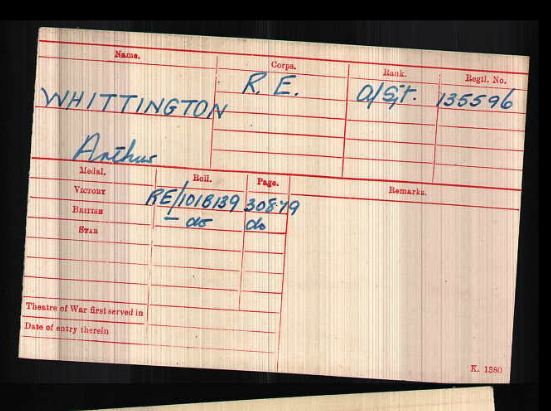 Name. Corps. Rank. Regtl. No.
WHITTINGTON R. E. A/Sjt. 135596
Arthur
Medal. Roll. Page. Remarks.
VICTORY RE/101B139 30879
BRITISH — do do
STAR
Theatre of War first served in
Date of entry therein
K. 1380